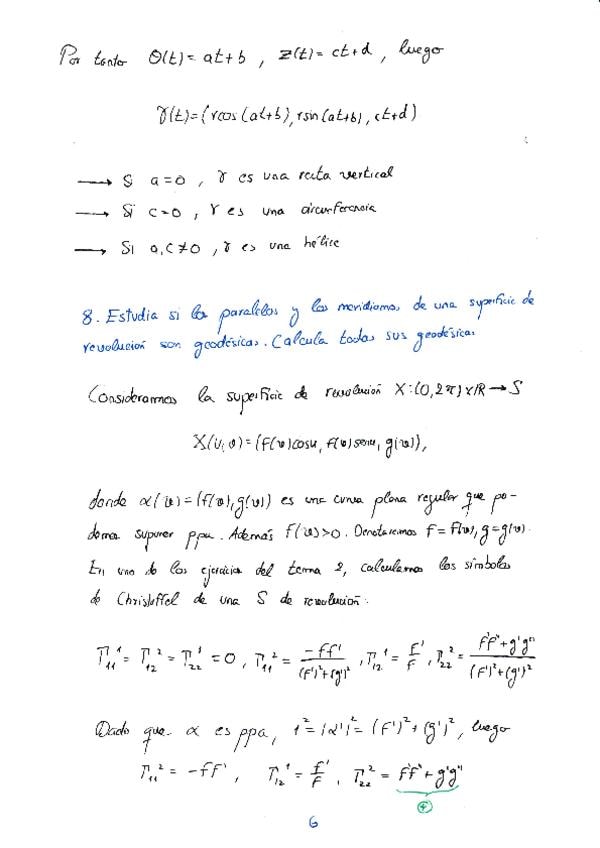 Por tanto θ(t) = at+b , z(t) = ct+d , luego
γ(t) = (rcos(at+b), rsin(at+b), ct+d)
→ Si a=0 , γ es una recta vertical
→ Si c=0 , γ es una circunferencia
→ Si a,c≠0 , γ es una hélice
8. Estudia si los paralelos y los meridianos de una superficie de
revolución son geodésicas. Calcula todas sus geodésicas.
Consideramos la superficie de revolución X:(0,2π)×ℝ→S
X(u,v) = (f(v)cosu, f(v)senu, g(v)),
donde α(v) = (f(v), g(v)) es una curva plana regular que po-
demos suponer ppa. Además f(v)>0. Denotaremos f=f(v), g=g(v).
En uno de los ejercicios del tema 2, calculamos los símbolos
de Christoffel de una S de revolución:
Γ₁₁¹ = Γ₁₂² = Γ₂₂¹ = 0 , Γ₁₁² = -ff'/((f')²+(g')²) , Γ₁₂¹ = f'/f , Γ₂₂² = (f'f''+g'g'')/((f')²+(g')²)
Dado que α es ppa, 1² = |α'|² = (f')²+(g')², luego
Γ₁₁² = -ff' , Γ₁₂¹ = f'/f , Γ₂₂² = f'f''+g'g''
6